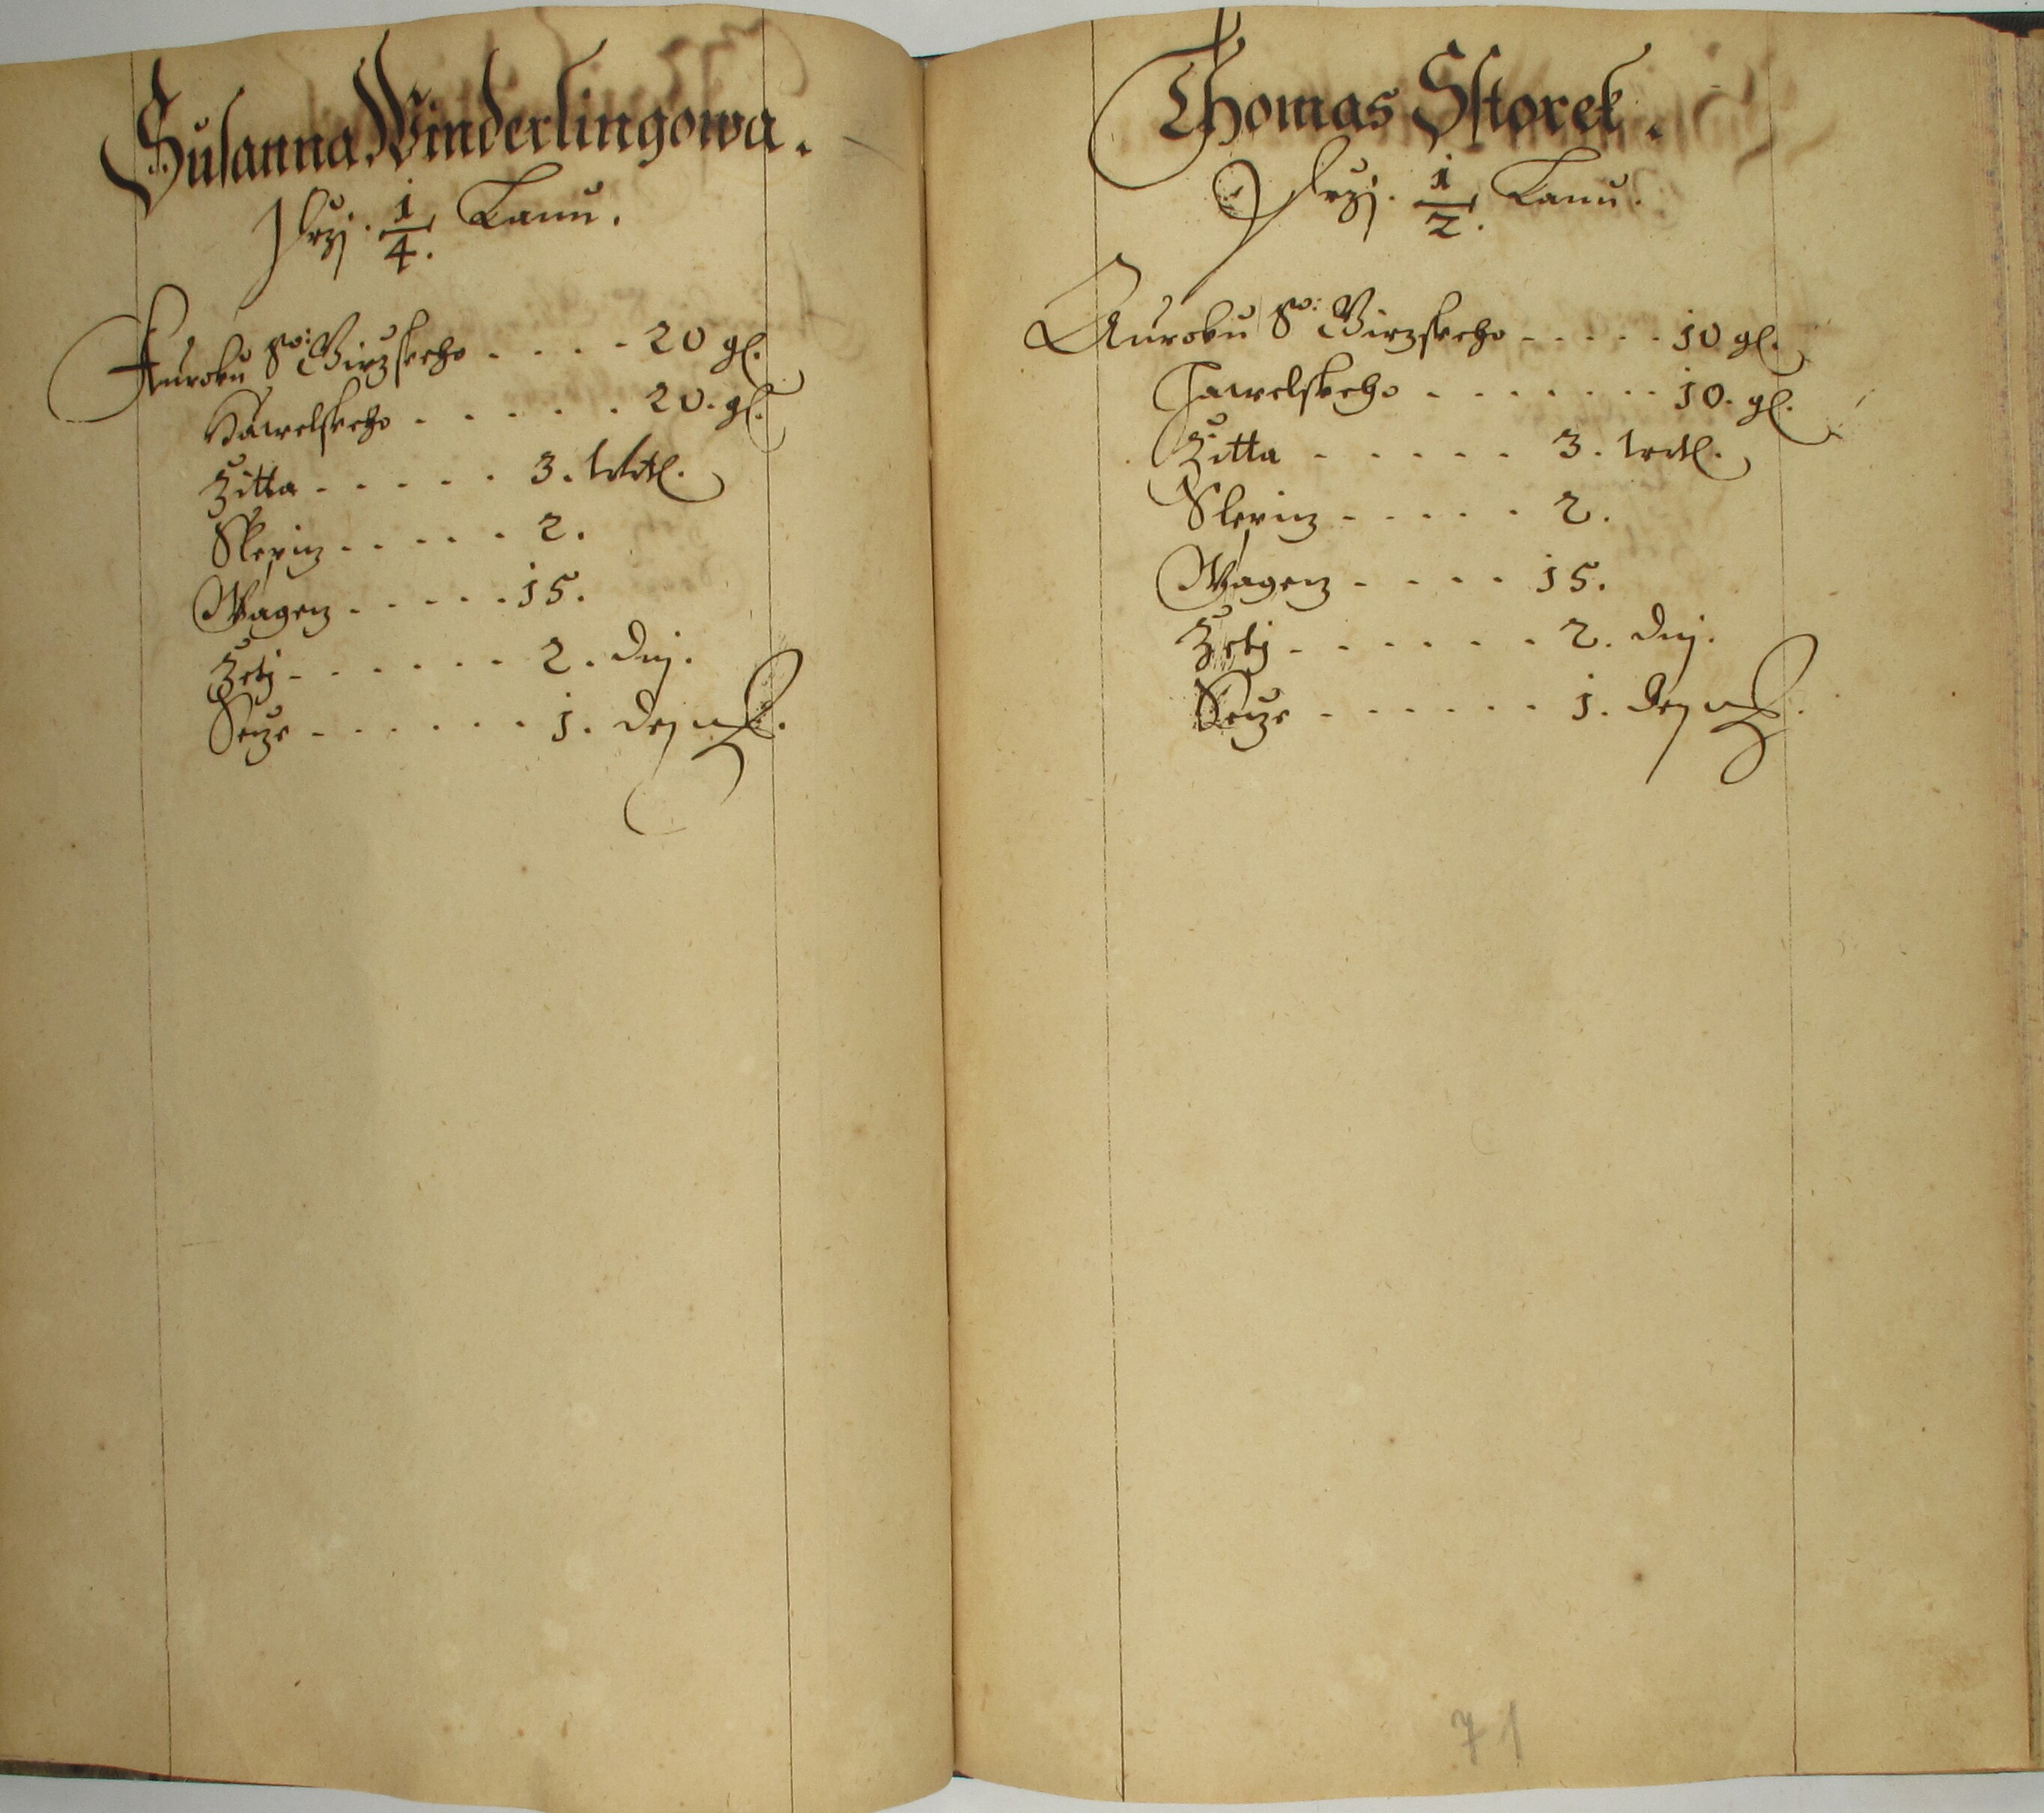 Susanna Winderlingowa.
Przj. 1/4. Lanu.
Auroku Sw: Girzskeho - - - - 20 gl.
Hawelskeho - - - - - - 20. gl.
Zitta - - - - - 3. wrtl.
Slepicz - - - - - 2.
Wagecz - - - - - 15.
Zetj - - - - - - 2. Dnj.
Secze - - - - - - 1. Den
Thomas Sstorek.
Przj. 1/2. Lanu.
Auroku Sw: Girzskeho - - - - - 10 gl.
Hawelskeho - - - - - - - 10. gl.
Zitta - - - - - 3. wrtl.
Slepicz - - - - - 2.
Wagecz - - - - 15.
Zetj - - - - - - 2. Dnj.
Secze - - - - - - 1. Den
71